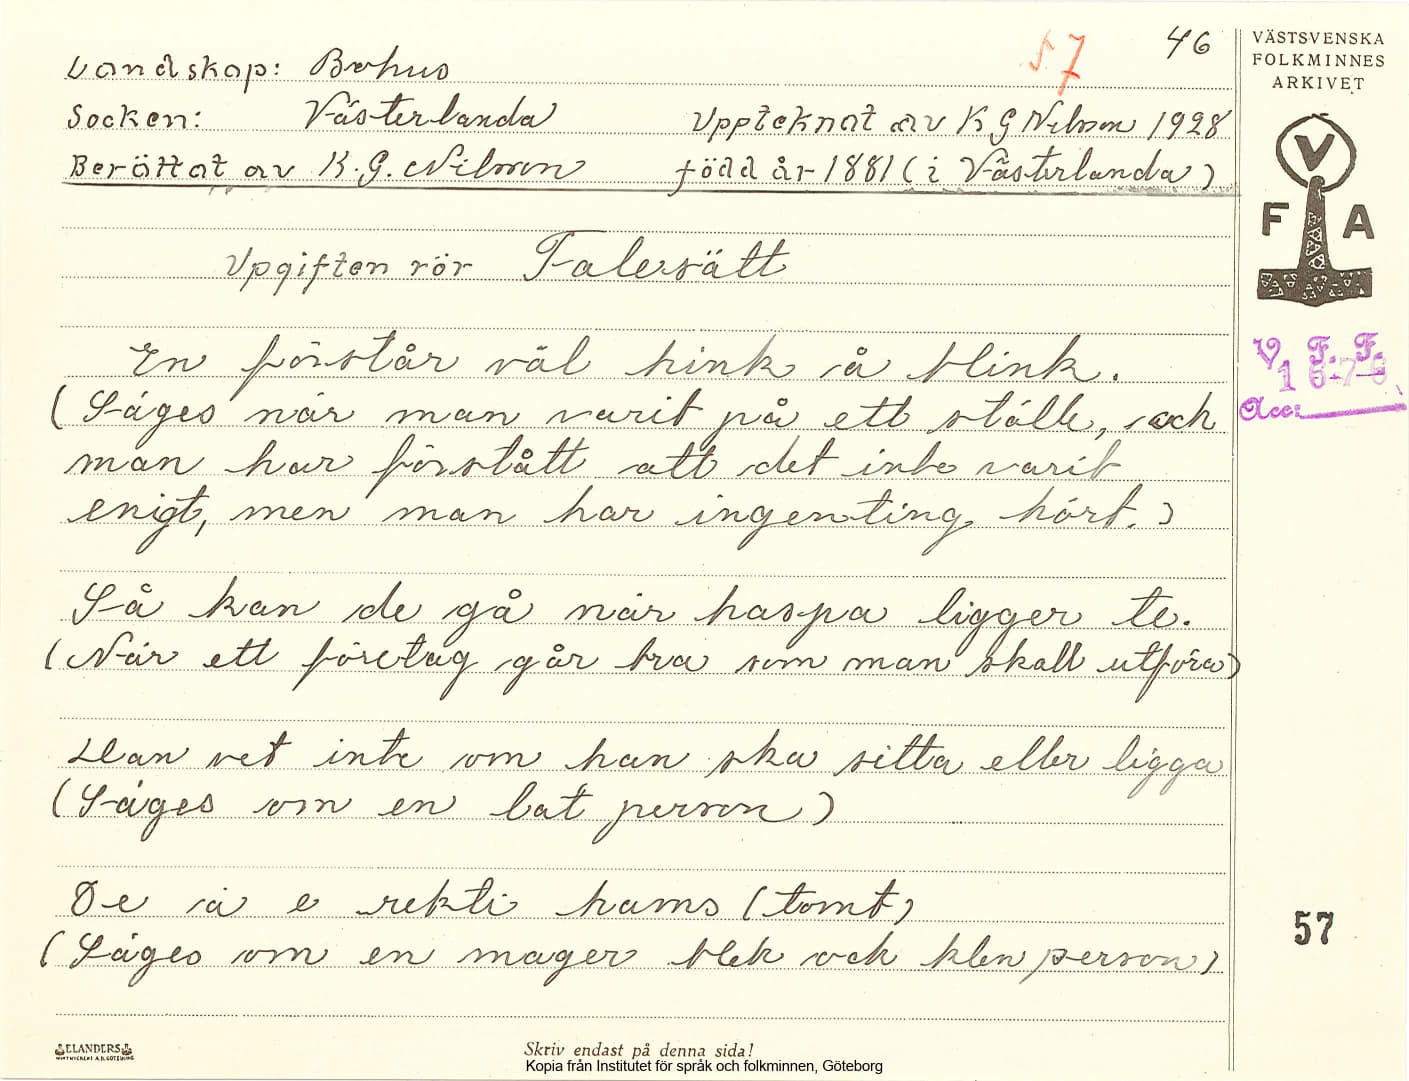 46
57
Landskap: Bohus
Socken: Västerlanda Upptecknat av K G Nilsson 1928
Berättat av K. G. Nilsson född år 1881 (i Västerlanda)
Uppgiften rör Talesätt
En förstår väl hink å blink.
(Säges när man varit på ett ställe, och
man har förstått att det inte varit
enigt, men man har ingenting hört.)
Så kan de gå när haspa ligger te.
(När ett företag går bra som man skall utföra)
Han vet inte om han ska sitta eller ligga
(Säges om en lat person)
De ä e rekti hams (tomt)
(Säges om en mager blek och klen person)
VÄSTSVENSKA
FOLKMINNES
ARKIVET
V
F A
V. F. F.
Acc:
57
ELANDERS
Skriv endast på denna sida!
Kopia från Institutet för språk och folkminnen, Göteborg